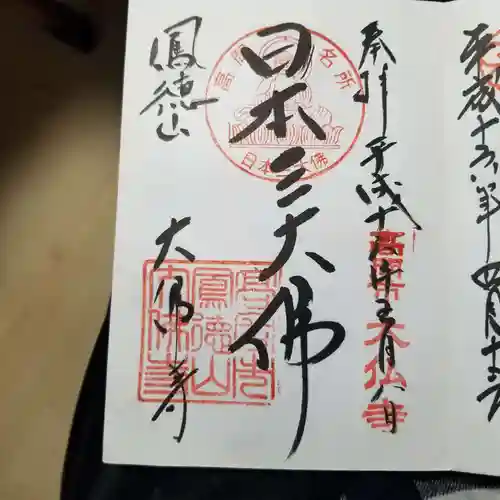 平成十六年四月十五日
奉拝 平成十六年五月八日
高岡大仏寺
日本三大佛
高岡 名所
日本三大佛
鳳徳山
大佛寺
高岡市
鳳徳山
大佛寺